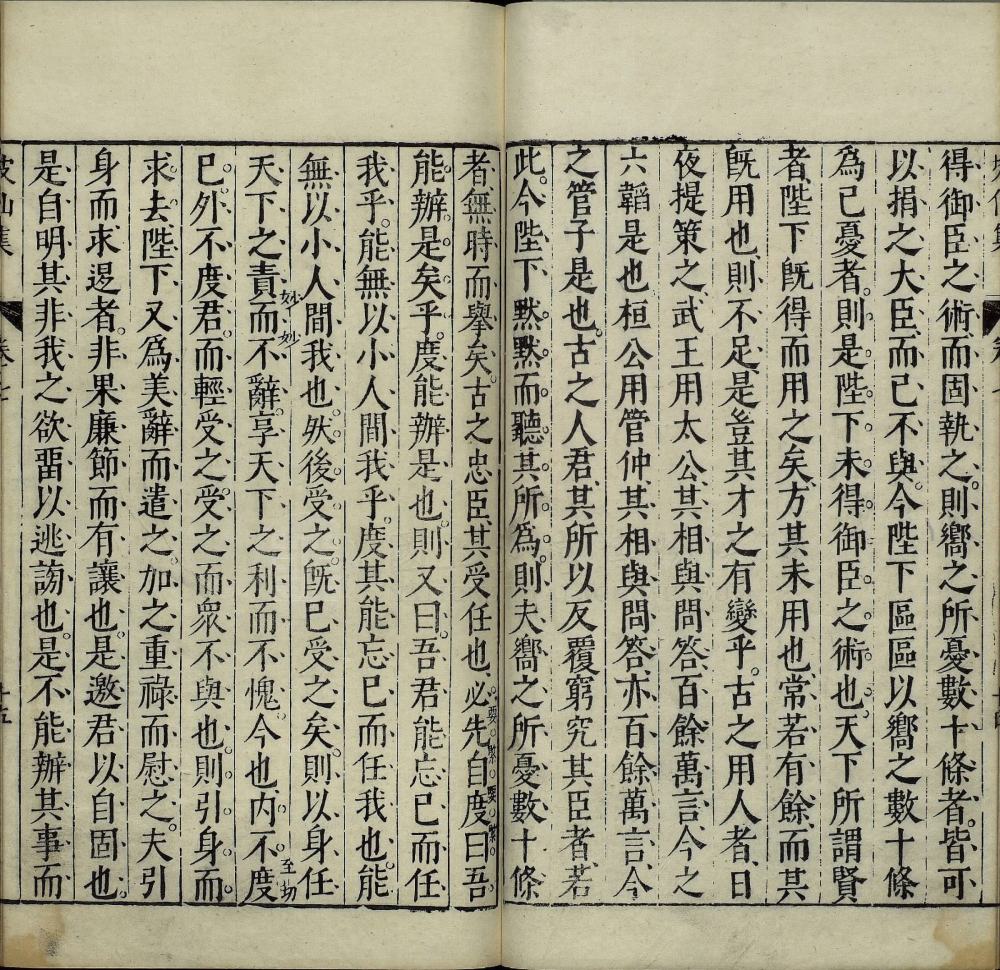 得御臣之術而固執之則嚮之所憂數十條者皆可
以捐之大臣而已不與今陛下區區以嚮之數十條
爲己憂者則是陛下未得御臣之術也天下所謂賢
者陛下旣得而用之矣方其未用也常若有餘而其
旣用也則不足是豈其才之有變乎古之用人者日
夜提策之武王用太公其相與問答百餘萬言今之
六韜是也桓公用管仲其相與問答亦百餘萬言今
之管子是也古之人君其所以反覆窮究其臣者若
此今陛下默默而聽其所爲則夫嚮之所憂數十條
者無時而舉矣古之忠臣其受任也必先自度曰吾
要緊要緊
能辦是矣乎度能辦是也則又曰吾君能忘已而任
我乎能無以小人間我乎度其能忘已而任我也能
無以小人間我也然後受之旣已受之矣則以身任
妙妙
天下之責而不辭享天下之利而不愧今也内不度
至切
已外不度君而輕受之受之而衆不與也則引身而
求去陛下又爲美辭而遣之加之重祿而慰之夫引
身而求退者非果廉節而有讓也是邀君以自固也
是自明其非我之欲畱以逃謗也是不能辦其事而